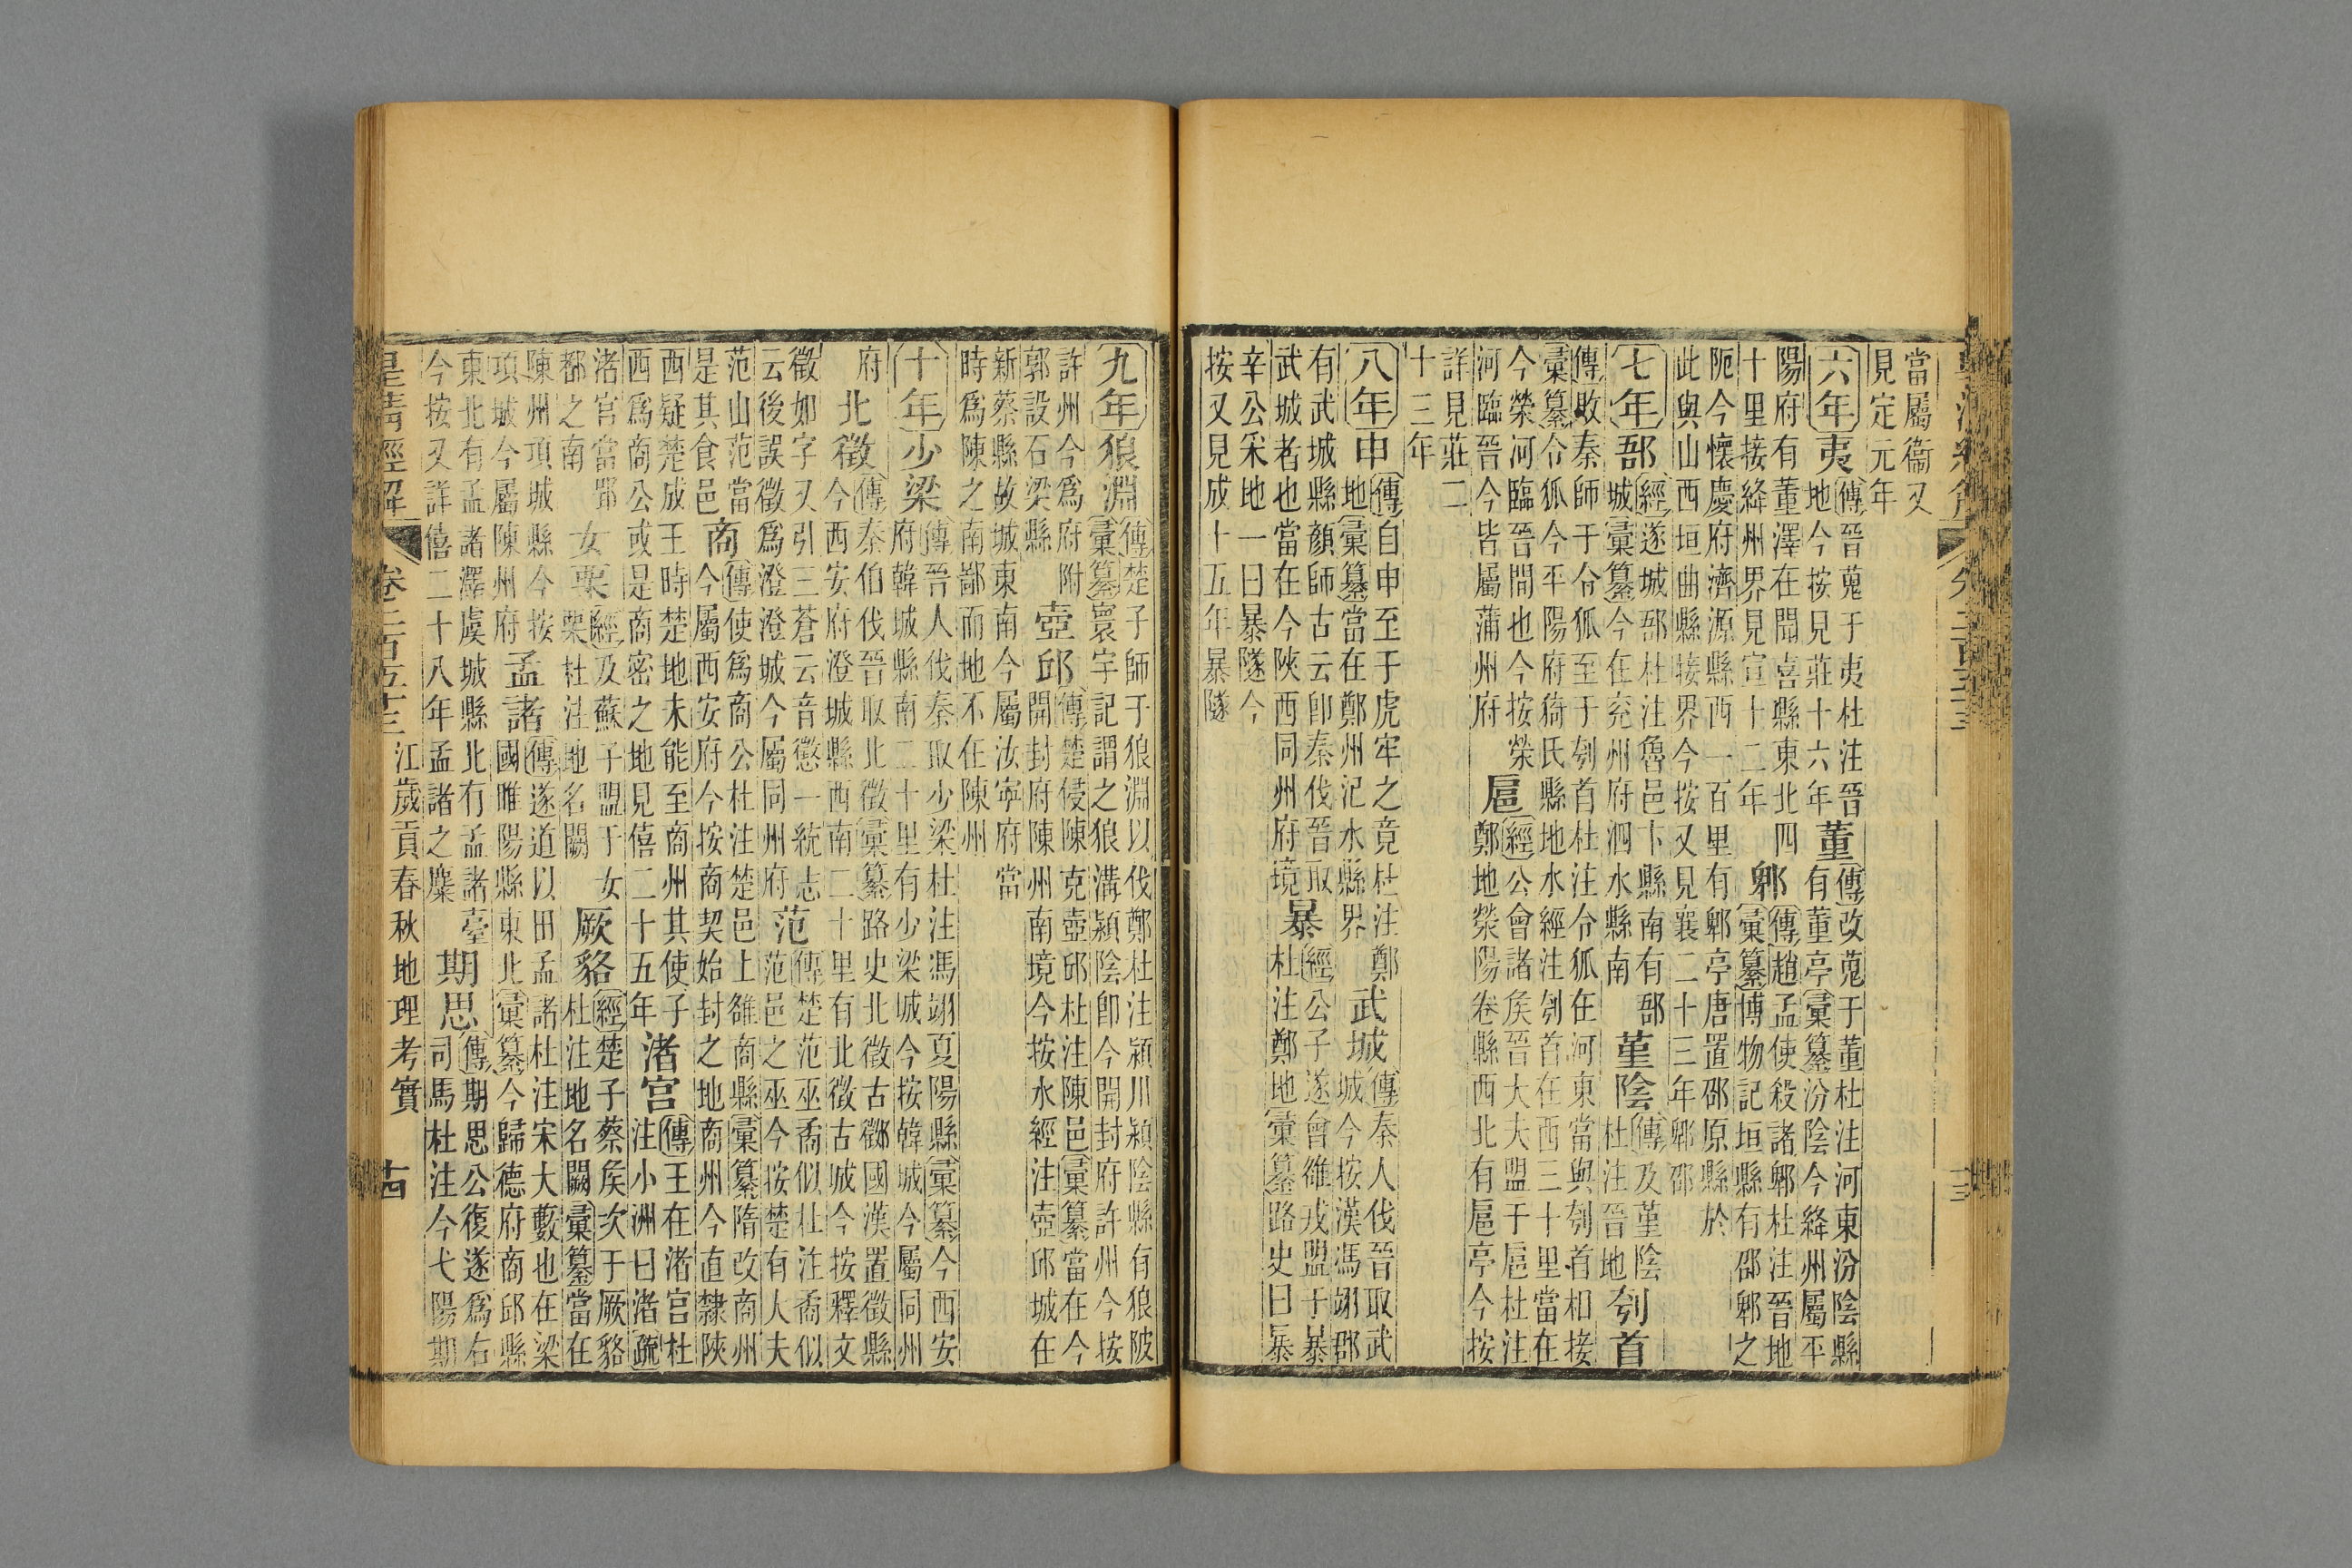 當屬衞又見定元年
六年夷傳晉蒐于夷杜注晉地今按見莊十六年董傳改蒐于董杜注河東汾陰縣有董亭彙纂汾陰今絳州屬平
陽府有董澤在聞喜縣東北四十里接絳州界見宣十二年郫傳趙孟使殺諸郫杜注晉地彙纂博物記垣縣有邵郫之
阨今懷慶府濟源縣西一百里有郫亭唐置邵原縣於此與山西垣曲縣接界今按又見襄二十三年郫邵
七年郚經遂城郚杜注魯邑卞縣南有郚城彙纂今在兖州府泗水縣南菫陰傳及菫陰杜注晉地刳首
傳敗秦師于令狐至于刳首杜注令狐在河東當與刳首相接彙纂令狐今平陽府猗氏縣地水經注刳首在西三十里當在
今榮河臨晉間也今按榮河臨晉今皆屬蒲州府扈經公會諸矦晉大夫盟于扈杜注鄭地滎陽卷縣西北有扈亭今按
詳見莊二十三年
八年申傳自申至于虎牢之竟杜注鄭地彙纂當在鄭州汜水縣界武城傳秦人伐晉取武城今按漢馮翊郡
有武城縣顏師古云卽秦伐晉取武城者也當在今陜西同州府境暴經公子遂會雒戎盟于暴杜注鄭地彙纂路史曰暴
辛公采地一曰暴隧今按又見成十五年暴隧
九年狼淵傳楚子師于狼淵以伐鄭杜注潁川潁陰縣有狼陂彙纂寰宇記謂之狼溝潁陰卽今開封府許州今按
許州今爲府附郭設石梁縣壺邱傳楚侵陳克壺邱杜注陳邑彙纂當在今開封府陳州南境今按水經注壺邱城在
新蔡縣故城東南今屬汝寧府當時爲陳之南鄙而地不在陳州
十年少梁傳晉人伐秦取少梁杜注馮翊夏陽縣彙纂今西安府韓城縣南二十里有少梁城今按韓城今屬同州
府北徵傳秦伯伐晉取北徵彙纂路史北徵古鄒國漢置徵縣今西安府澄城縣西南二十里有北徵古城今按釋文
徵如字又引三蒼云音懲一統志云後誤徵爲澄澄城今屬同州府范傳楚范巫矞似杜注矞似范邑之巫今按楚有大夫
范山范當是其食邑商傳使爲商公杜注楚邑上雒商縣彙纂隋改商州今屬西安府今按商契始封之地商州今直隸陝
西疑楚成王時楚地未能至商州其使子西爲商公或是商密之地見僖二十五年渚宮傳王在渚宮杜注小洲曰渚疏
渚宮當郢都之南女栗經及蘇子盟于女栗杜注地名闕厥貉經楚子蔡矦次于厥貉杜注地名闕彙纂當在
陳州項城縣今按項城今屬陳州府孟諸傳遂道以田孟諸杜注宋大藪也在梁國睢陽縣東北彙纂今歸德府商邱縣
東北有孟諸澤虞城縣北有孟諸臺今按又詳僖二十八年孟諸之麋期思傳期思公復遂爲右司馬杜注今弋陽期
皇清經解 卷二百五十三 江歲貢春秋地理考實 十四